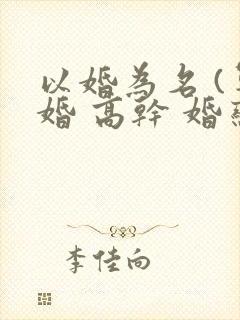 以婚為名(
婚 高幹 婚
李佳向